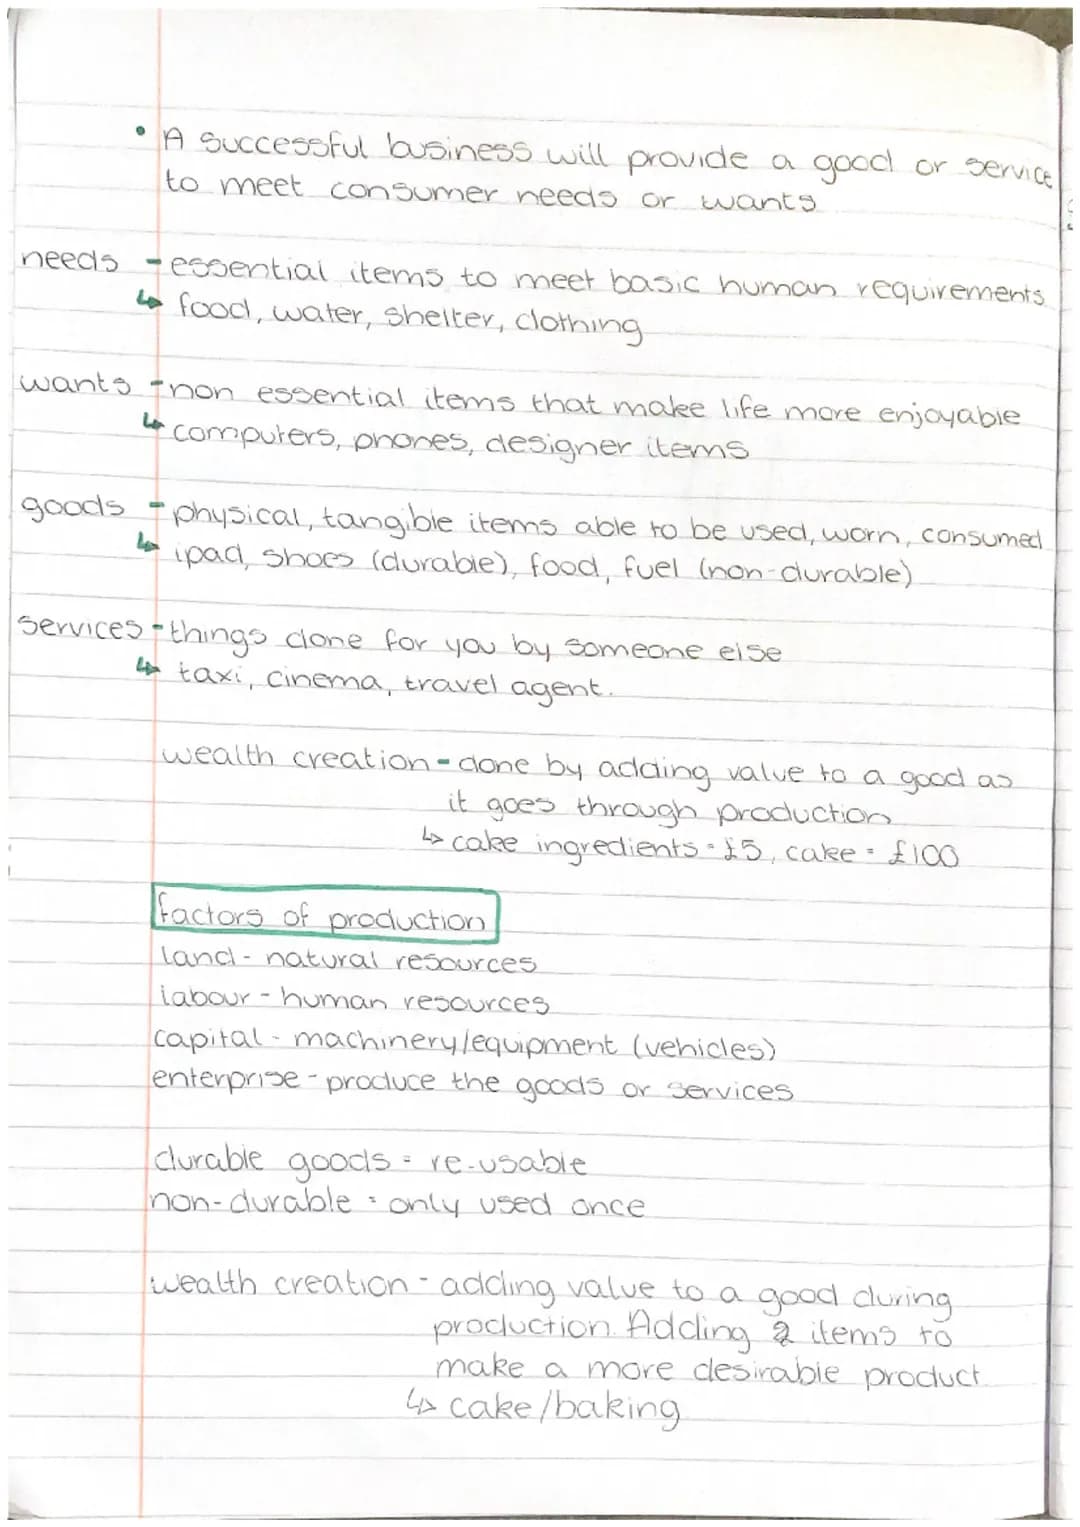 • A successful business will provide a good or service
to meet consumer needs or wants
needs - essential items to meet basic human requirements
↳ food, water, shelter, clothing
wants - non essential items that make life more enjoyable
↳ computers, phones, designer items
goods - physical, tangible items able to be used, worn, consumed
↳ ipad, shoes (durable), food, fuel (non-durable)
services - things done for you by someone else
↳ taxi, cinema, travel agent.
wealth creation - done by adding value to a good as
it goes through production
↳ cake ingredients = £5, cake = £100
factors of production
land - natural resources
labour - human resources
capital - machinery/equipment (vehicles)
enterprise - produce the goods or services
durable goods = re-usable
non-durable = only used once
wealth creation - adding value to a good during
production. Adding 2 items to
make a more desirable product
↳ cake/baking